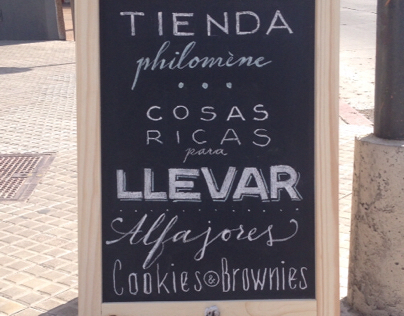 TIENDA
philomène
COSAS
RICAS
para
LLEVAR
Alfajores
Cookies & Brownies